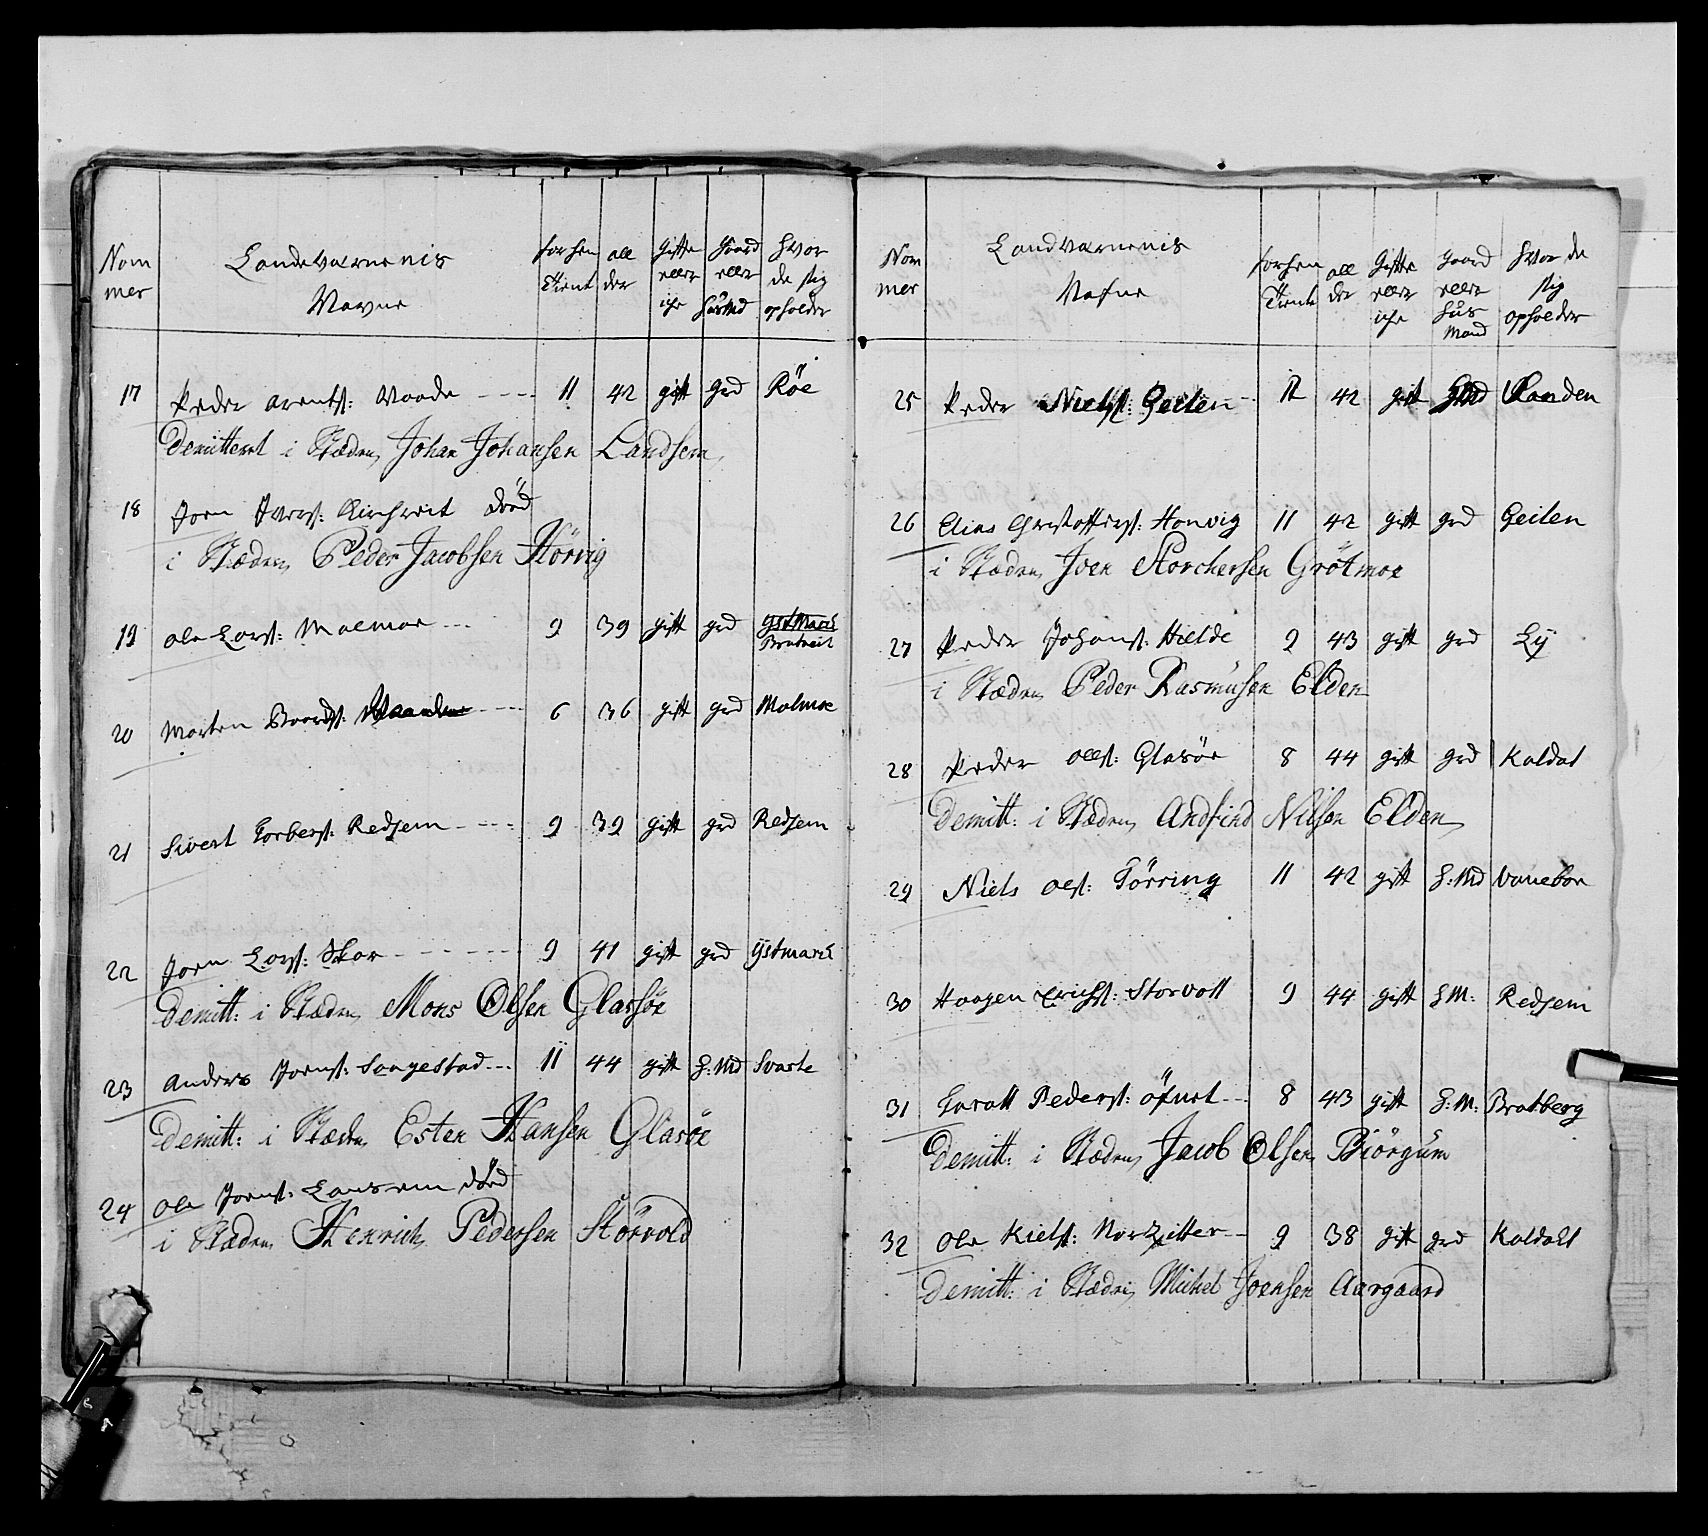 Nom
mer
Landeværnenis
Navne
forhen
Tient
all
der
gifte
eller
iche
Gaard
eller
Husmd
Hvor
de sig
opholder
17 Peder arentß: Vaade 11 42 gift grd Röe
Demitteret i Stæden Johan Johansen Landsem
18 Joen Iversß: död
i Stæden Peder Jacobsen Hörvig
19 ole Larsß: Malmoe 9 39 gift grd
Bratreit
20 Morten Baardsß: 6 36 gift grd Malmoe
21 Sivert Torbersß: Redsem 9 39 gift grd Redsem
22 Joen Larsß: Skar 9 41 gift grd ystmark
Demitt: i Stæden Mons Olsen Glassöe
23 Anders Joensß: Saagestad 11 44 gift H:Md Svarte
Demitt: i Stæden Esten Hansen Glasöe
24 ole Joensß: död
i Stæden Henrich Pedersen Störvold
Nom
mer
Landværnenis
Nafne
forhen
Tient
all
der
Gifte
eller
iche
gaard
eller
Hus
Mand
Hvor de
sig
opholder
25 Peder Nielsß: Geilen 11 42 gift Grd
26 Elias Christoffersß: Honvig 11 42 gift grd Geilen
i Stæden Joen Storchersen Grötmoe
27 Peder Johansß: Hielde 9 43 gift grd Ly
i Stæden Peder Rasmusen Elden
28 Peder olsß: Glasöe 8 44 gift grd Kaldal
Demitt: i Stæden Andfind Nilsen Elden
29 Niels olsß: Törring 11 42 gift H:Md Vaneboe
30 Haagen Erichsß: Storvoll 9 44 gift H M: Redsem
31 Pedersß: öfnet 8 43 gift H:M: Bratberg
Demitt: i Stæden Jacob Olsen Biörgum
32 ole Kielsß: 9 38 gift grd Kaldahl
Demitt: i Stæden Michel Joensen Aargaard